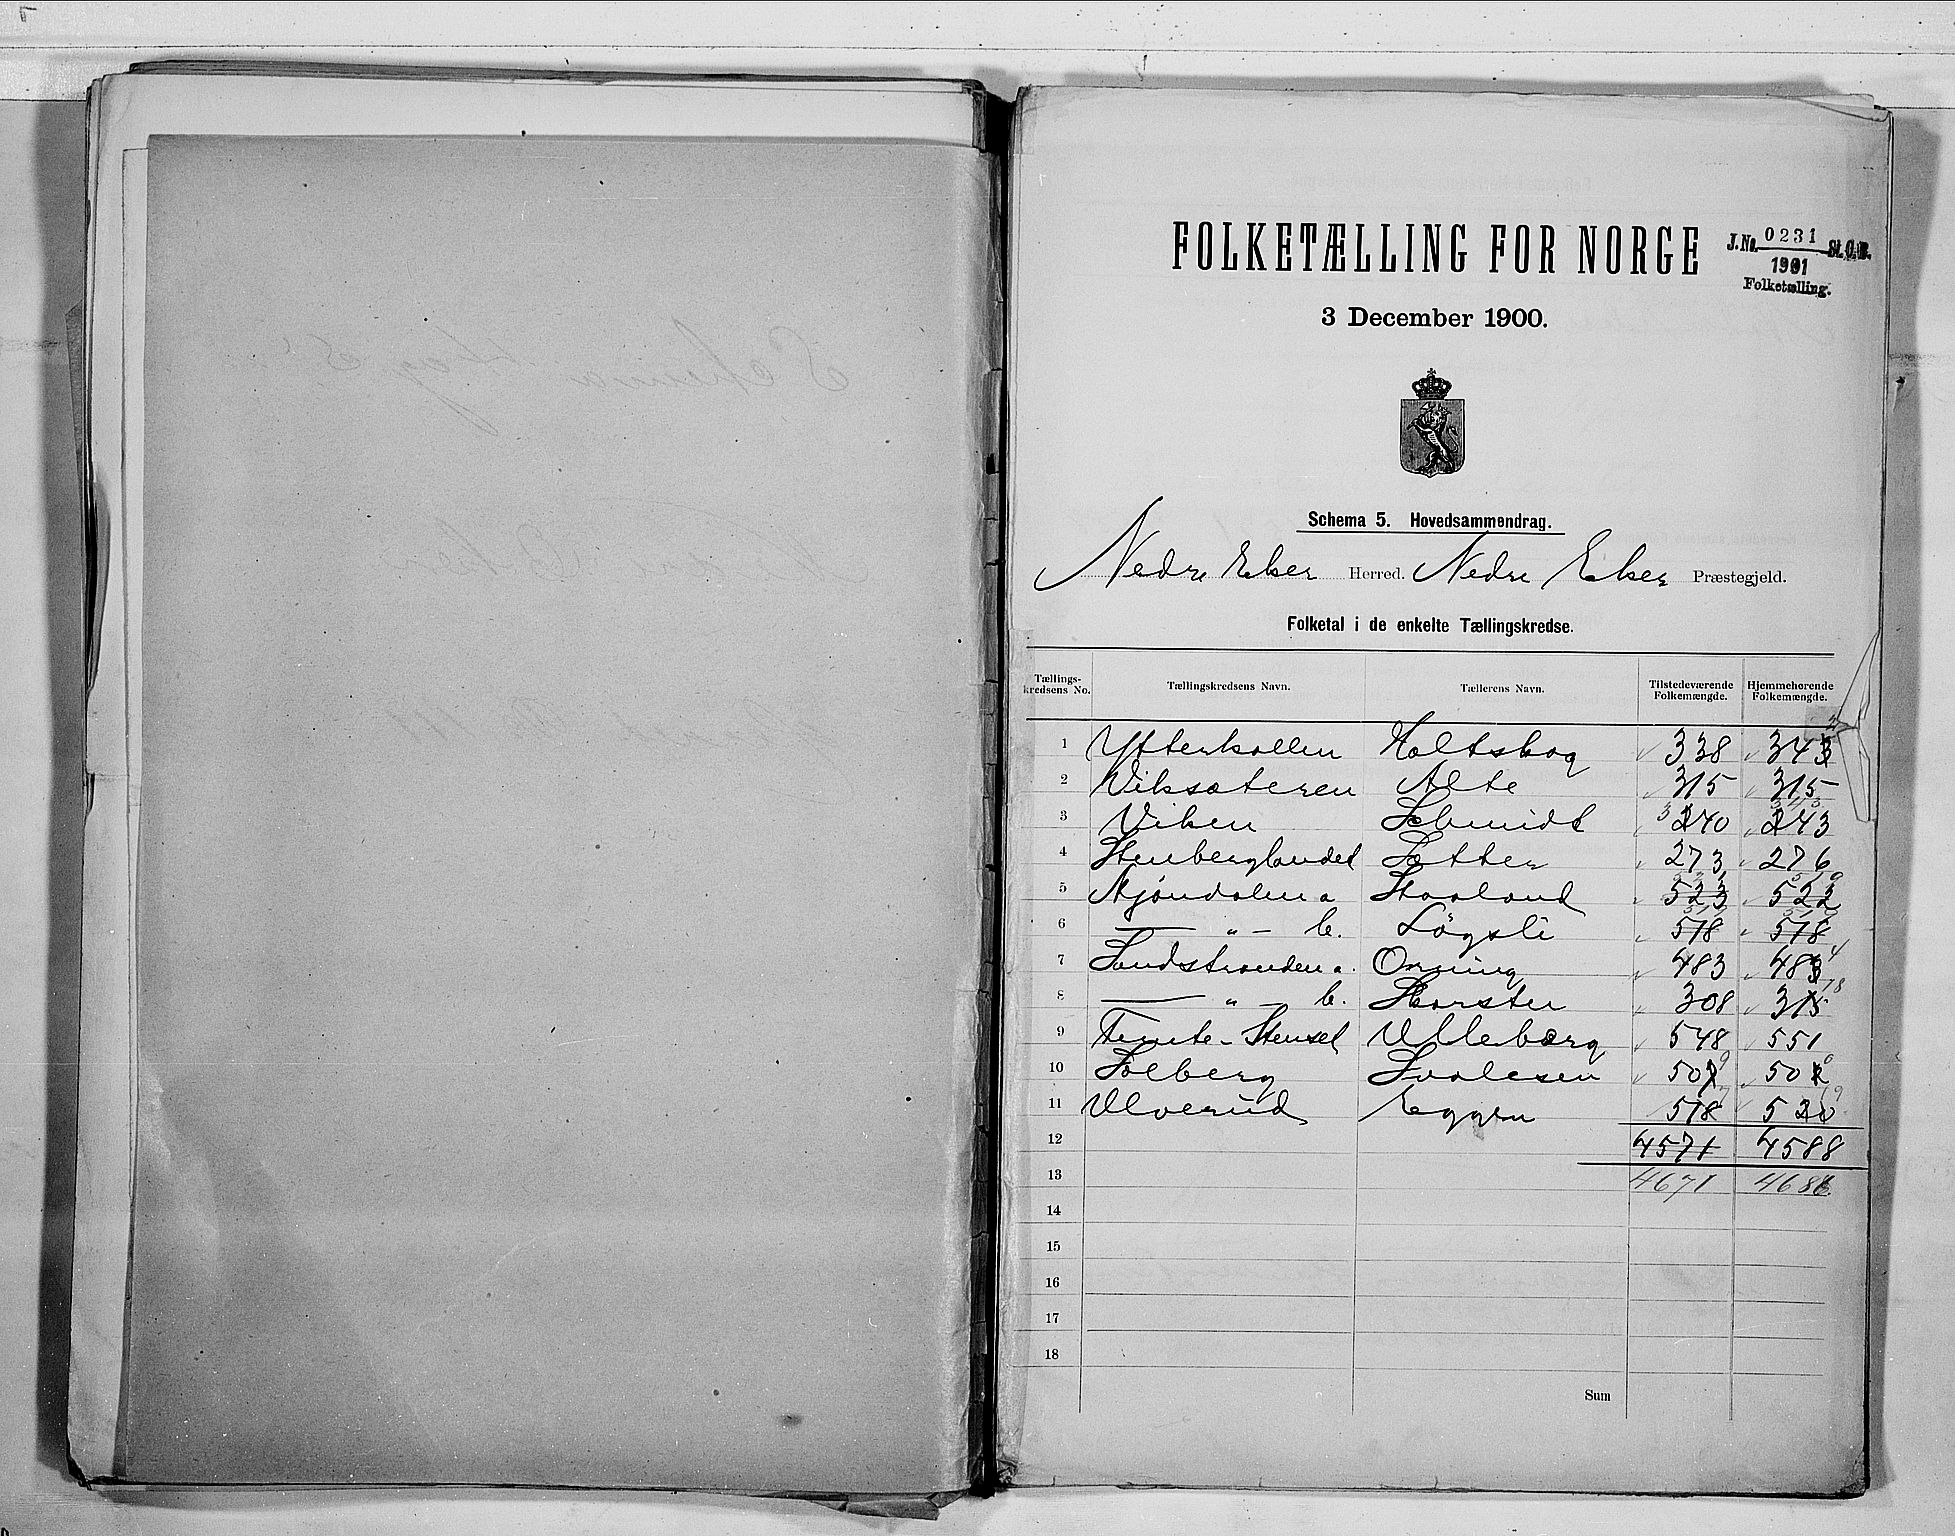 FOLKETÆLLING FOR NORGE
J.No. 0231 St.C.B.
1901
Folketælling.
3 December 1900.
Schema 5. Hovedsammendrag.
Nedre Eker Herred. Nedre Eker Præstegjeld.
Folketal i de enkelte Tællingskredse.
Tællings-kredsens No. Tællingskredsens Navn. Tællerens Navn. Tilstedeværende Folkemængde. Hjemmehørende Folkemængde.
1 Ytterkollen Holtskog 338 343
2 Viksæteren Alte 315 315
3 Viken Schmidt 240 243
4 Stenberglandet Sætter 273 276
5 Mjøndalen a Staaland 523 522
6 — " — b. Løgsli 518 518
7 Sandstranden a. Orning 483 483
8 — " — b. Horsten 308 315
9 Temte-Stenset Ulleberg 548 551
10 Solberg 507 502
11 Ulverud Eggen 518 520
12 4571 4588
13 4671 4686.
14
15
16
17
18
Sum